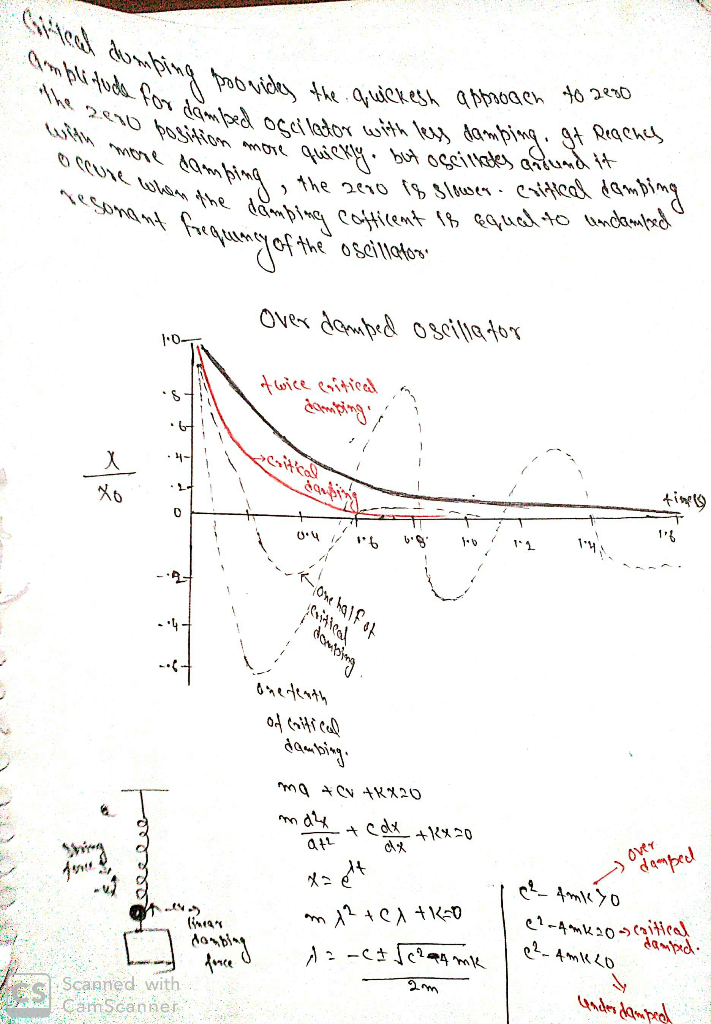 Critical dumping provides the quickesh approach to zero
amplitude for damped oscilator with less damping. It Reaches
the zero position more quickly. but oscillates around it
with more damping, the zero is slower. critical damping
occure when the damping cofficent is equal to undamped
resonant frequency of the oscillator.
Over damped oscillator
1.0
.8
.6
.4
.2
0
-.2
-.4
-.6
X
X0
twice critical
damping.
critical
damping
time(s)
0.4
1.6
0.8
1.0
1.2
1.4
1.6
one half of
critical
damping
one tenth
of critical
damping.
ma + cv + kx=0
m d²x/dt² + c dx/dx + kx=0
x = e^λt
mλ² + cλ + k=0
λ = -c ± √c²-4mk
2m
c² - 4mk > 0
over
damped
c² - 4mk=0 → critical
damped.
c² - 4mk<0
under damped
string
force
-cv →
linear
damping
force
CS
Scanned with
CamScanner